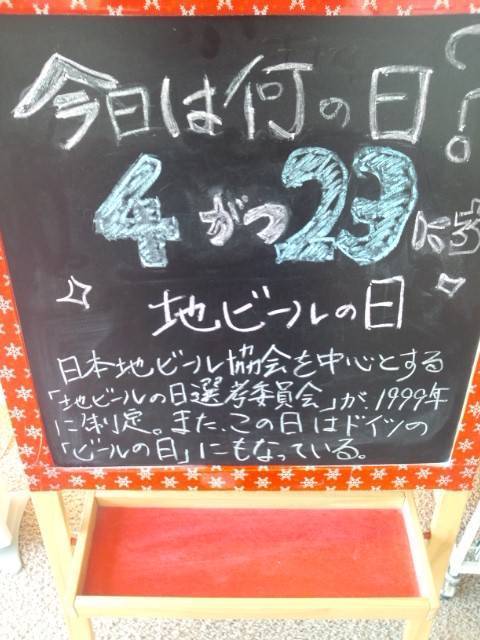 今日は何の日?
4がつ23にち
地ビールの日
日本地ビール協会を中心とする
「地ビールの日選考委員会」が、1999年
に制定。また、この日はドイツの
「ビールの日」にもなっている。